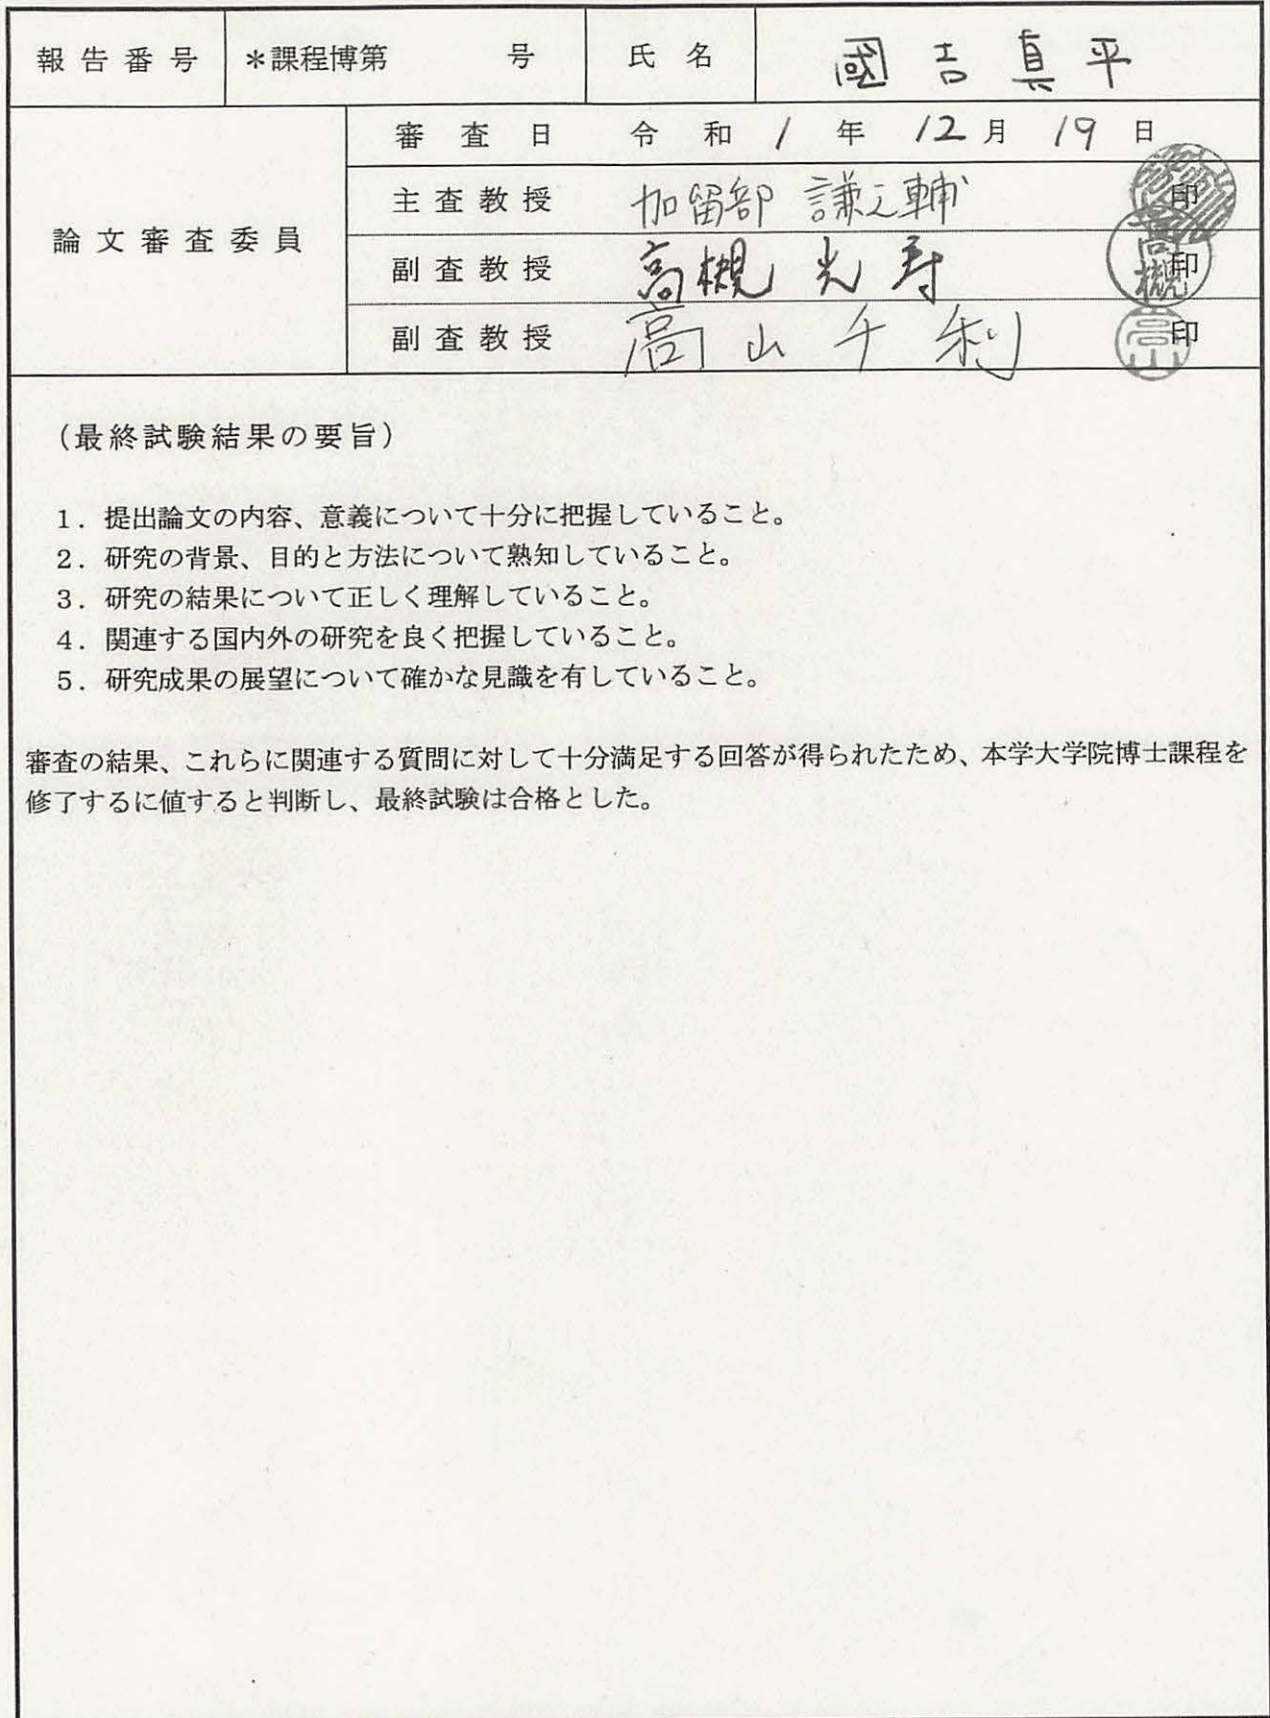 報告番号 *課程博第 号 氏名 國吉真平
審査日 令和 1 年 12 月 19 日
論文審査委員
主査教授 加留部 謙之輔 印
副査教授 高槻 光寿 印 高槻
副査教授 高山 千利 印 高山
(最終試験結果の要旨)
1. 提出論文の内容、意義について十分に把握していること。
2. 研究の背景、目的と方法について熟知していること。
3. 研究の結果について正しく理解していること。
4. 関連する国内外の研究を良く把握していること。
5. 研究成果の展望について確かな見識を有していること。
審査の結果、これらに関連する質問に対して十分満足する回答が得られたため、本学大学院博士課程を
修了するに値すると判断し、最終試験は合格とした。